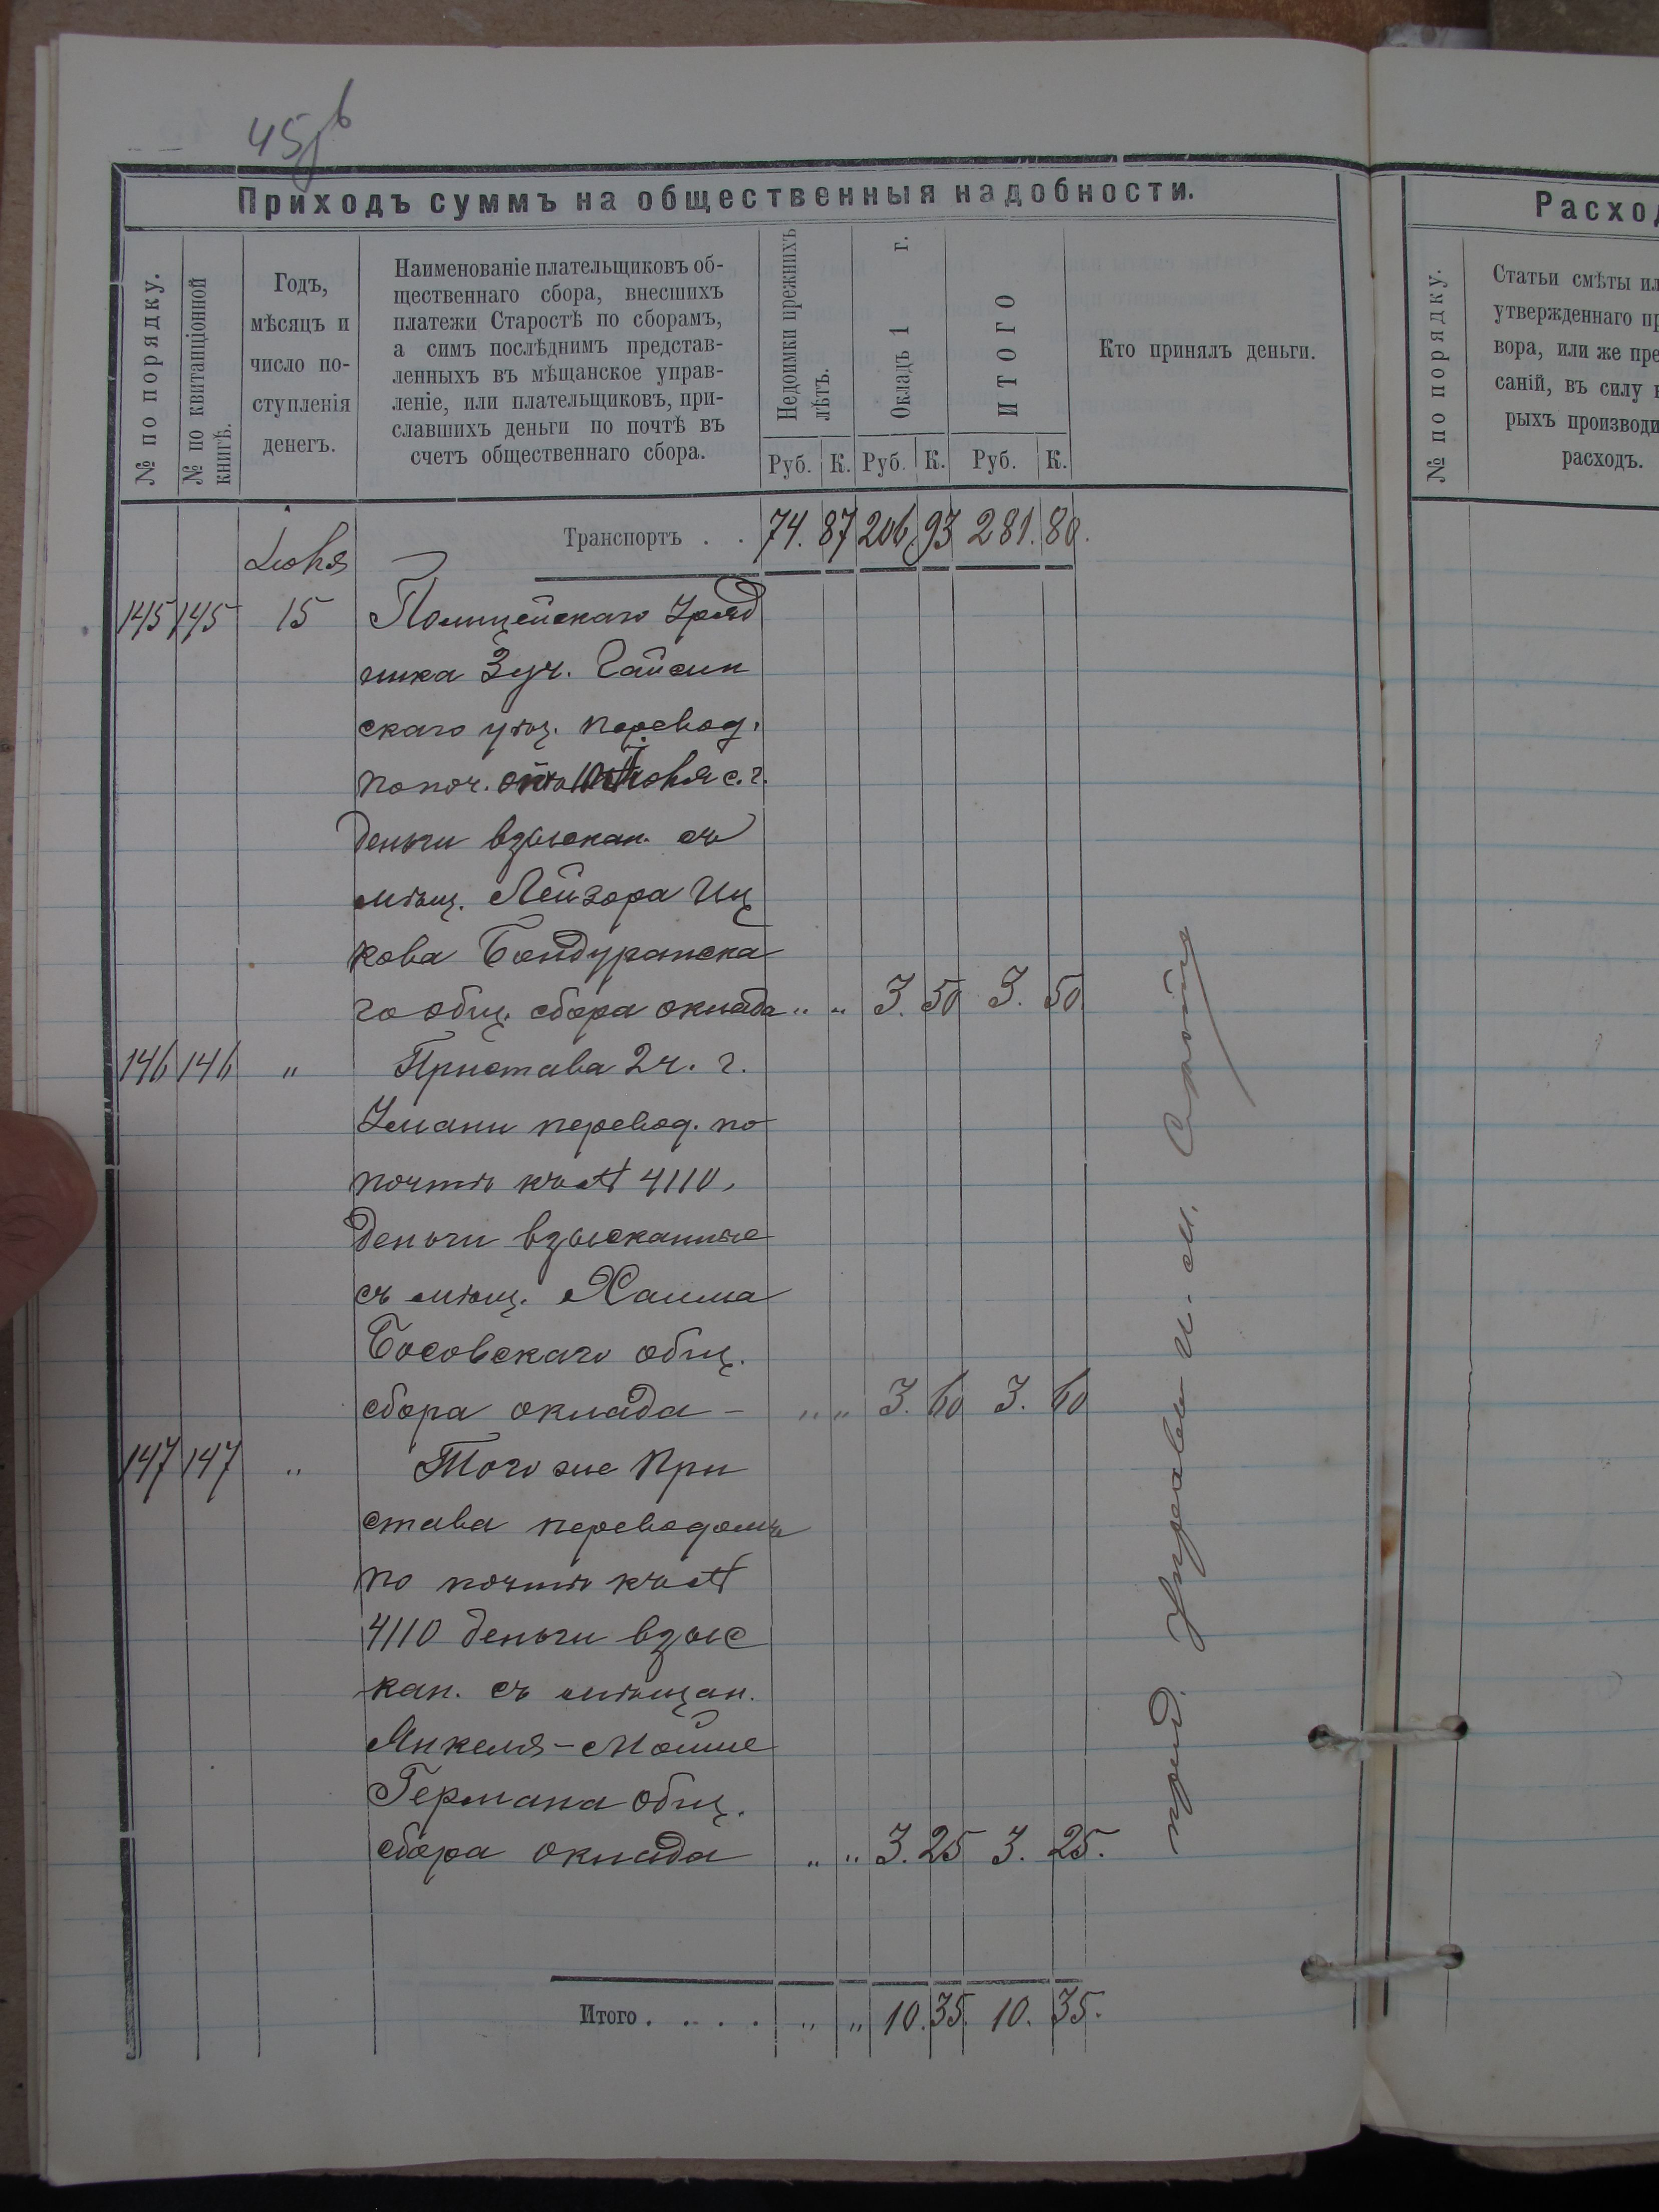 45об
Приходъ суммъ на общественныя надобности.
№ по порядку.
№ по квитанціонной книгѣ.
Годъ,
мѣсяцъ и
число по-
ступленія
денегъ.
Наименованіе плательщиковъ об-
щественнаго сбора, внесшихъ
платежи Старостѣ по сборамъ,
а симъ послѣднимъ представ-
ленныхъ въ мѣщанское управ-
леніе, или плательщиковъ, при-
славшихъ деньги по почтѣ въ
счетъ общественнаго сбора.
Недоимки прежнихъ лѣтъ.
Окладъ 1 г.
ИТОГО
Кто принялъ деньги.
Руб. К. Руб. К. Руб. К.
Транспортъ . . 74. 87 206. 93 281. 80.
Іюня
145 145 15 Полицейскаго Уряд
ника 3 уч. Гайсин
скаго уѣз. перевод.
по поч. юня с. г.
деньги взыскан. съ
мѣщ. Лейзора Иц
кова Бондуранска
го общ. сбора оклада „ „ 3. 50 3. 50.
146 146 „ Пристава 2 ч. г.
Умани перевод. по
почтѣ къ № 4110,
деньги взысканные
съ мѣщ. Хаима
Босовскаго общ.
сбора оклада – „ „ 3. 60 3. 60
147 147 „ Того же При
става переводомъ
по почтѣ къ №
4110 деньги взыс
кан. съ мѣщан.
Янкеля-Мошие
Германа общ.
сбора оклада „ „ 3. 25 3. 25.
Итого . . . . „ „ 10. 35. 10. 35.
Управы
Расход
№ по порядку.
Статьи смѣты ил
утвержденнаго пр
вора, или же пре
саній, въ силу к
рыхъ производи
расходъ.